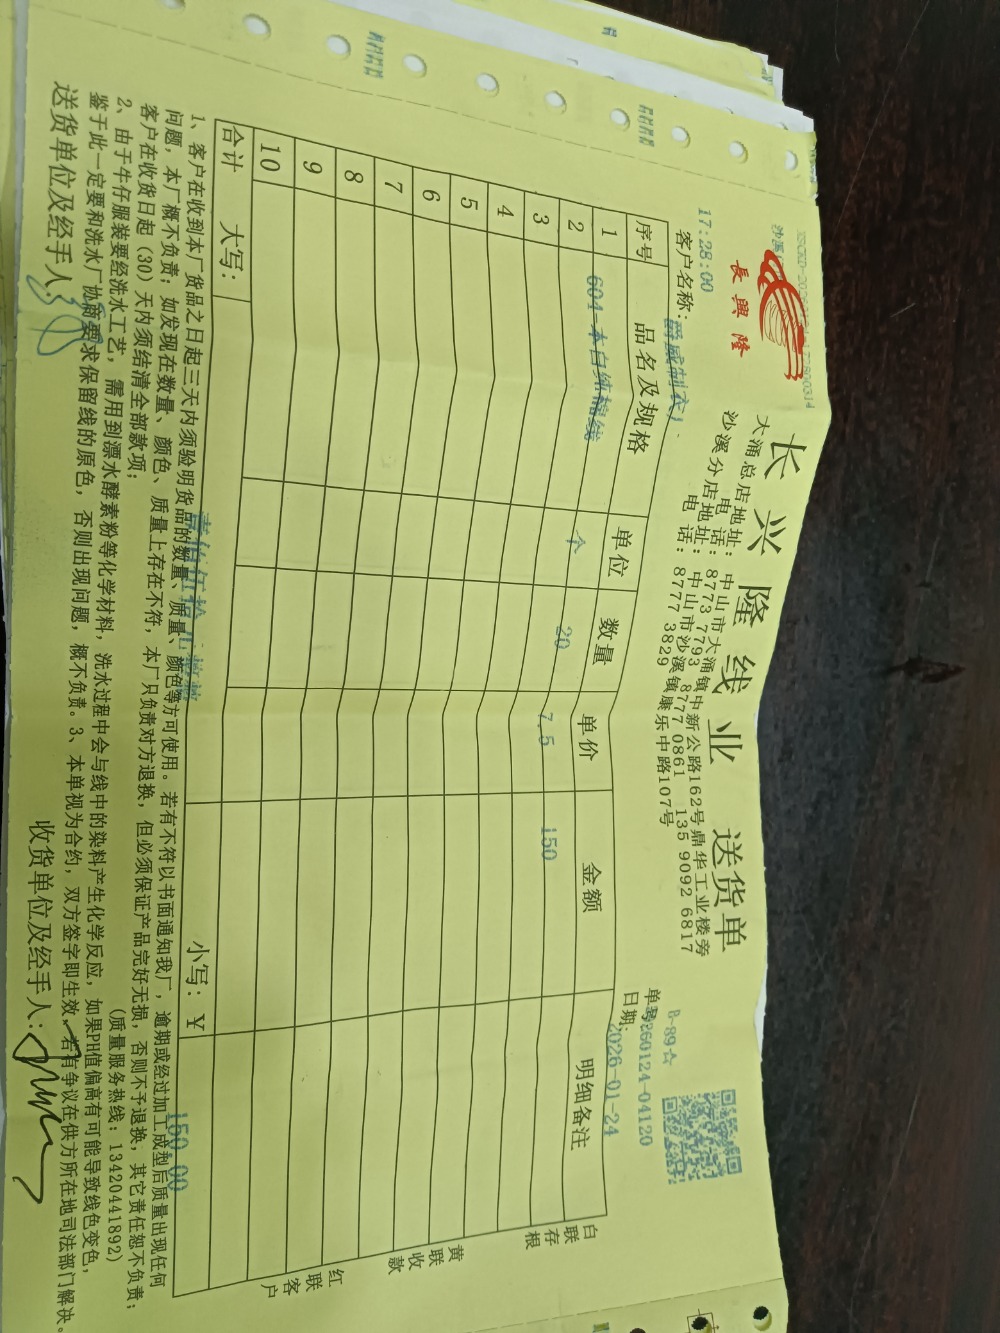 長興隆
长兴隆线业 送货单
大涌总店地址: 中山市大涌镇中新公路162号鼎华工业楼旁
电 话: 8773 7793 8777 0861 135 9092 6817
沙溪分店地址: 中山市沙溪镇康乐中路107号
电 话: 8777 3829
B-89☆
17:28:00
单号:260124-04120
客户名称:爵威制衣
日期: 2026-01-24
序号 品名及规格 单位 数量 单价 金额 明细备注
1 604 本白纯棉线 个 20 7.5 150
2
3
4
5
6
7
8
9
10
合计 大写: 壹佰伍拾元 小写: ¥ 150.00
白联存根
黄联收款
红联客户
1、客户在收到本厂货品之日起三天内须验明货品的数量、质量、颜色等方可使用。若有不符以书面通知我厂,逾期或经过加工成型后质量出现任何
问题,本厂概不负责;如发现在数量、颜色、质量上存在不符,本厂只负责对方退换,但必须保证产品完好无损,否则不予退换,其它责任恕不负责;
客户在收货日起(30)天内须结清全部款项; (质量服务热线:13420441892)
2、由于牛仔服装要经洗水工艺,需用到漂水酵素粉等化学材料,洗水过程中会与线中的染料产生化学反应,如果PH值偏高有可能导致线色变色,
鉴于此一定要和洗水厂协商要求保留线的原色,否则出现问题,概不负责。3、本单视为合约,双方签字即生效,若有争议在供方所在地司法部门解决。
送货单位及经手人: 收货单位及经手人: